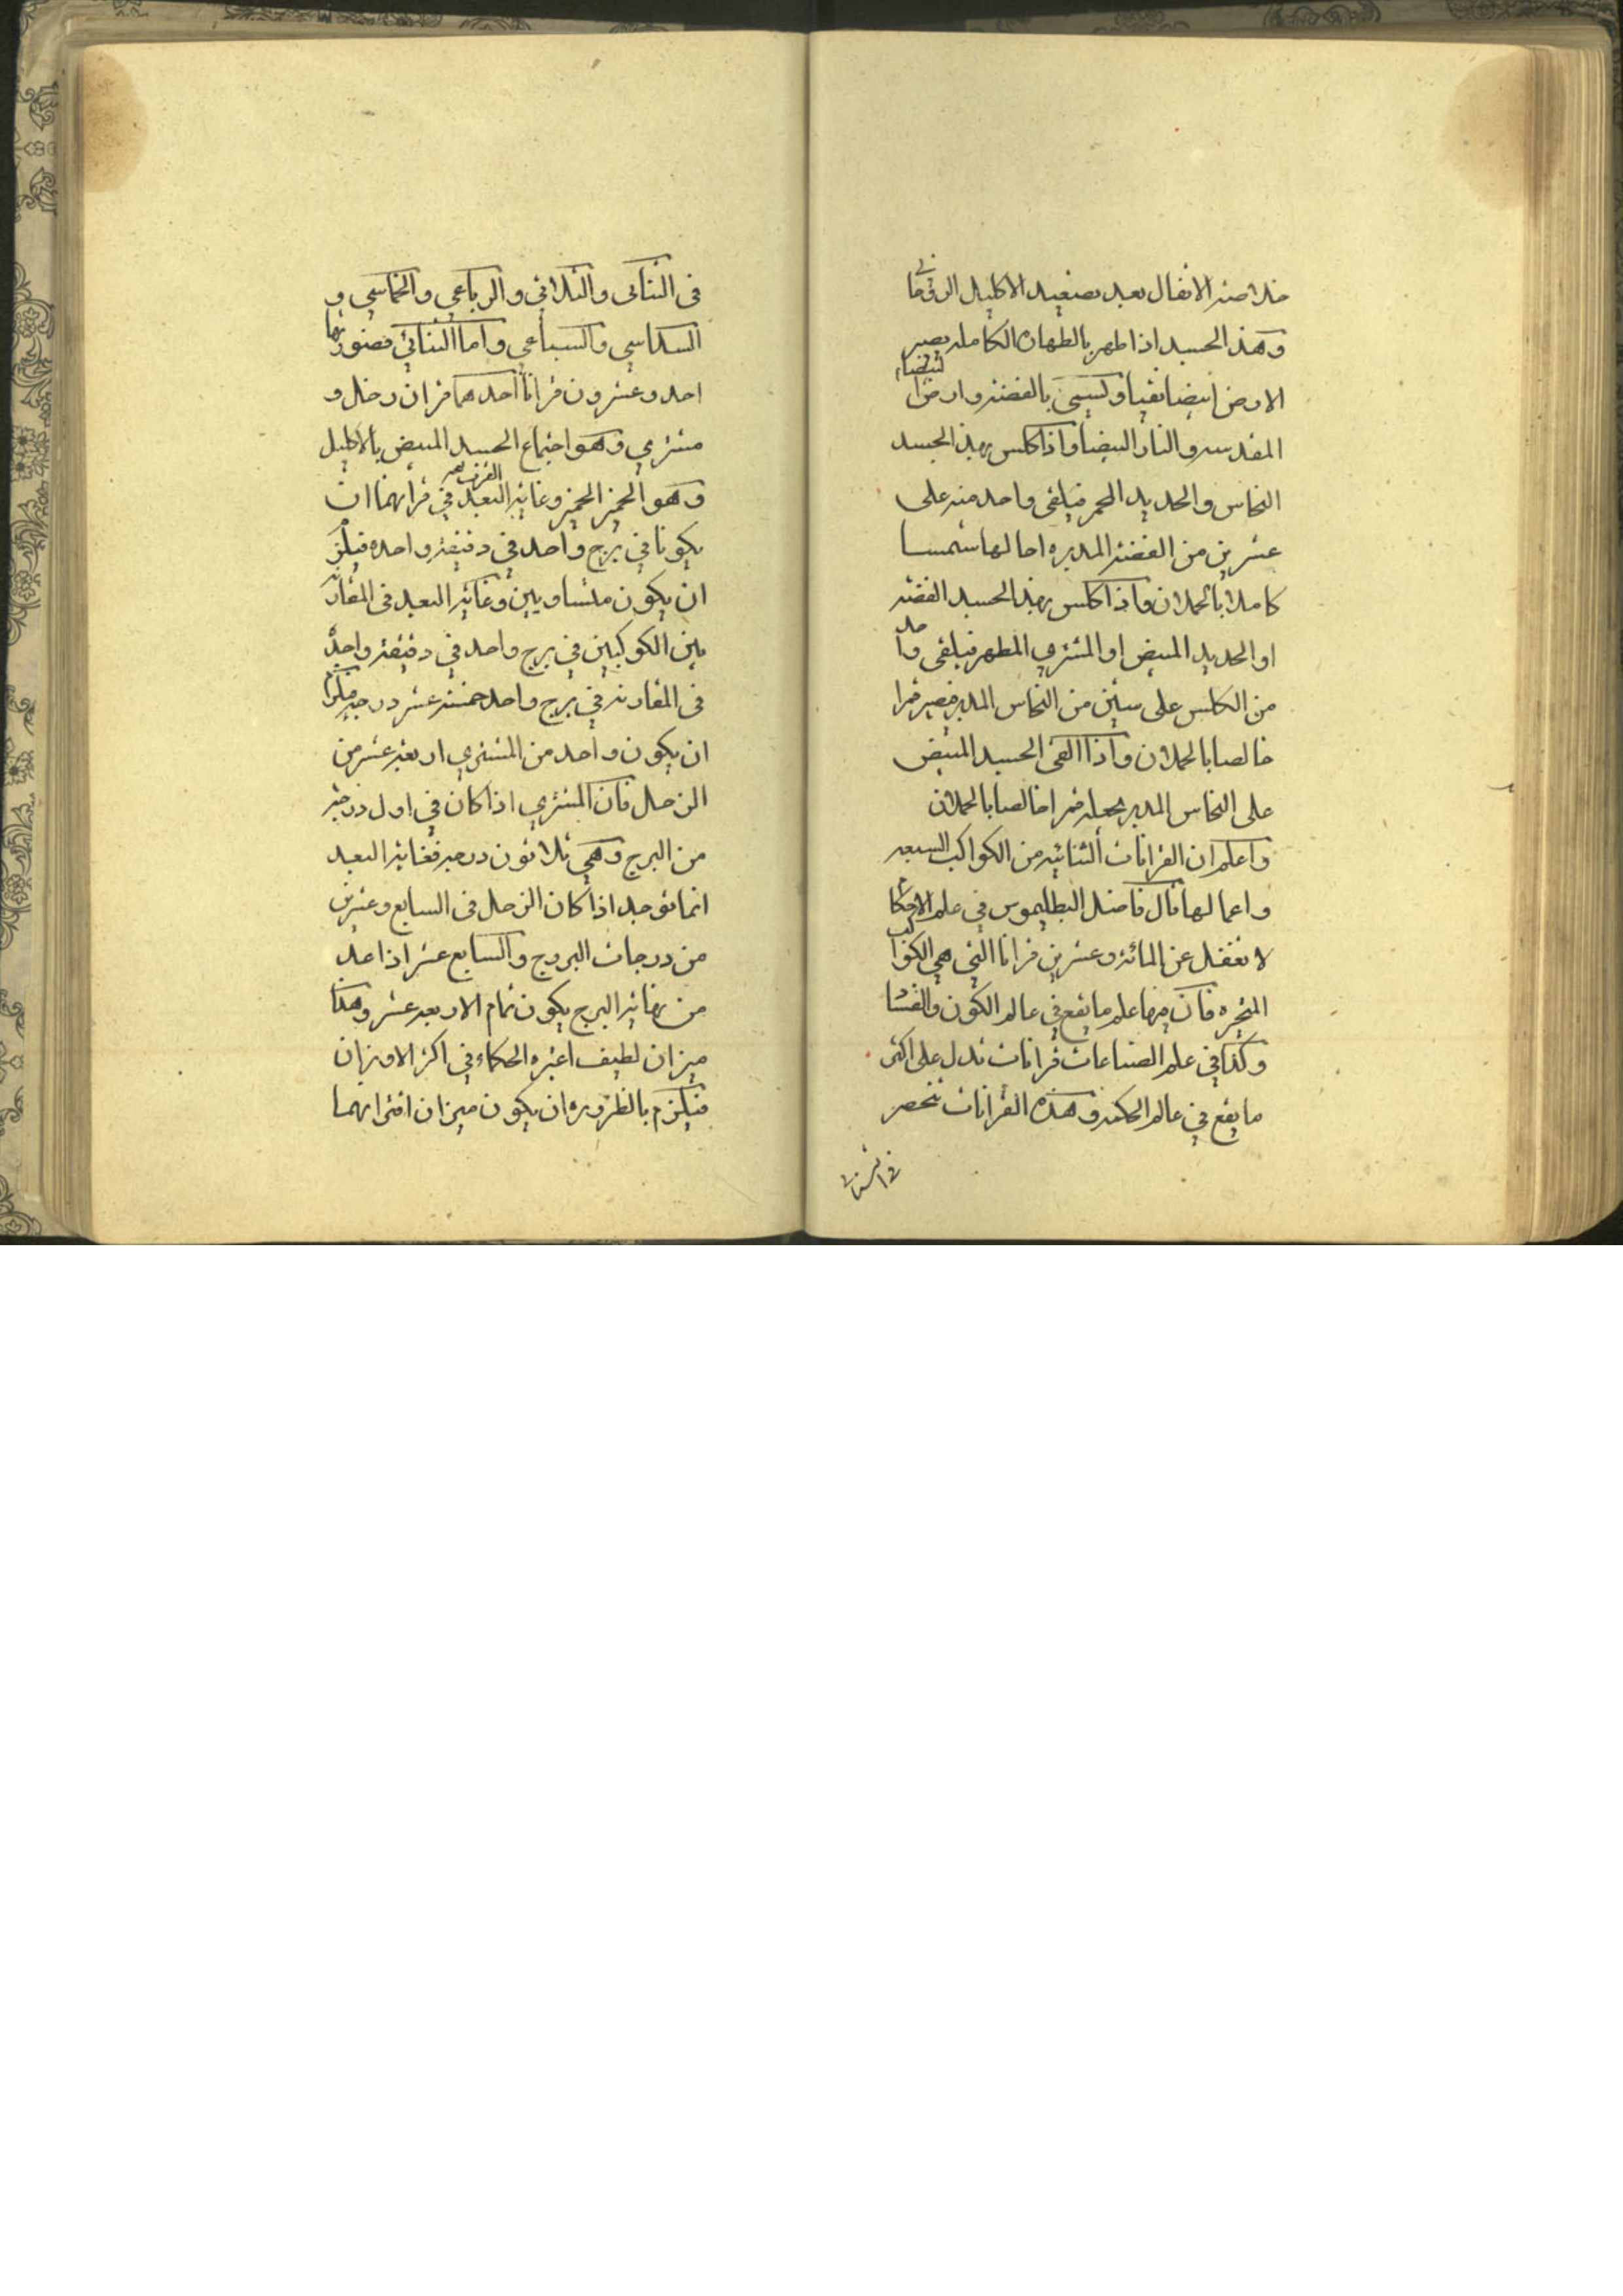 خلاصة الاثفال بعد تصعيد الاكليل الزئىقا
وهذ الجسد اذا طهر بالطهارة الكاملة يصير
الارض ابيضا نقيا ويسمى بالفضة وارضا
المقدسه والنار البيضا واذا كلس بهذ الجسد
النحاس والحديد المحمر فيلقى واحد منه على
عشرين من الفضة المدبره احالها شمسا
كاملا بالحملان واذا كلس بهذ الجسد الفضة
او الحديد المبيض او المشتري المطهر فيلقى واحد
من الكلس على ستين من النحاس المدبر فيصير قمرا
خالصا بالحملان واذا القى الجسد المبيض
على النحاس المدبر يجعله قمرا خالصا بالحملان
واعلم ان القرانات الثنائيه من الكواكب السبعه
واعمالها قال فاضل البطليموس في علم الاحكام
لا تغفل عن المائة وعشرين قرانا التي هي الكواكب
المتحيره فان فيها علم ما يقع في عالم الكون والفساد
وكذا في علم الصناعات قرانات تدل على اكثر
ما يقع في عالم الحكمه وهذه القرانات تنحصر
في الثنائى
فى الثنائى والثلاثي والرباعي والخماسي و
السداسي والسباعي واما الثنائي فصورتها
احد وعشرون قرانا احدهما قران زحل و
مشتري وهو اجتماع الجسد المبيض بالاكليل
وهو الحجز الحجز وغاية البعد في قرانهما ان
يكونا في برج واحد في دقيقة واحده فيلزم
ان يكون متساويين وغاية البعد فى المقارنه
بين الكوكبين في برج واحد في دقيقة واحدة
فى المقارنه في برج واحد خمسة عشر درجه فيلزم
ان يكون واحد من المشتري اربعة عشر من
الزحل فان المشتري اذا كان في اول درجة
من البرج وهي ثلاثون درجه فغاية البعد
انما توجد اذا كان الزحل فى السابع وعشرين
من درجات البروج والسابع عشر اذا عد
من نهاية البرج يكون تمام الاربعه عشر وهكذا
ميزان لطيف اعتبره الحكماء في اكثر الاوزان
فيلزم بالظروره ان يكون ميزان اقترانهما